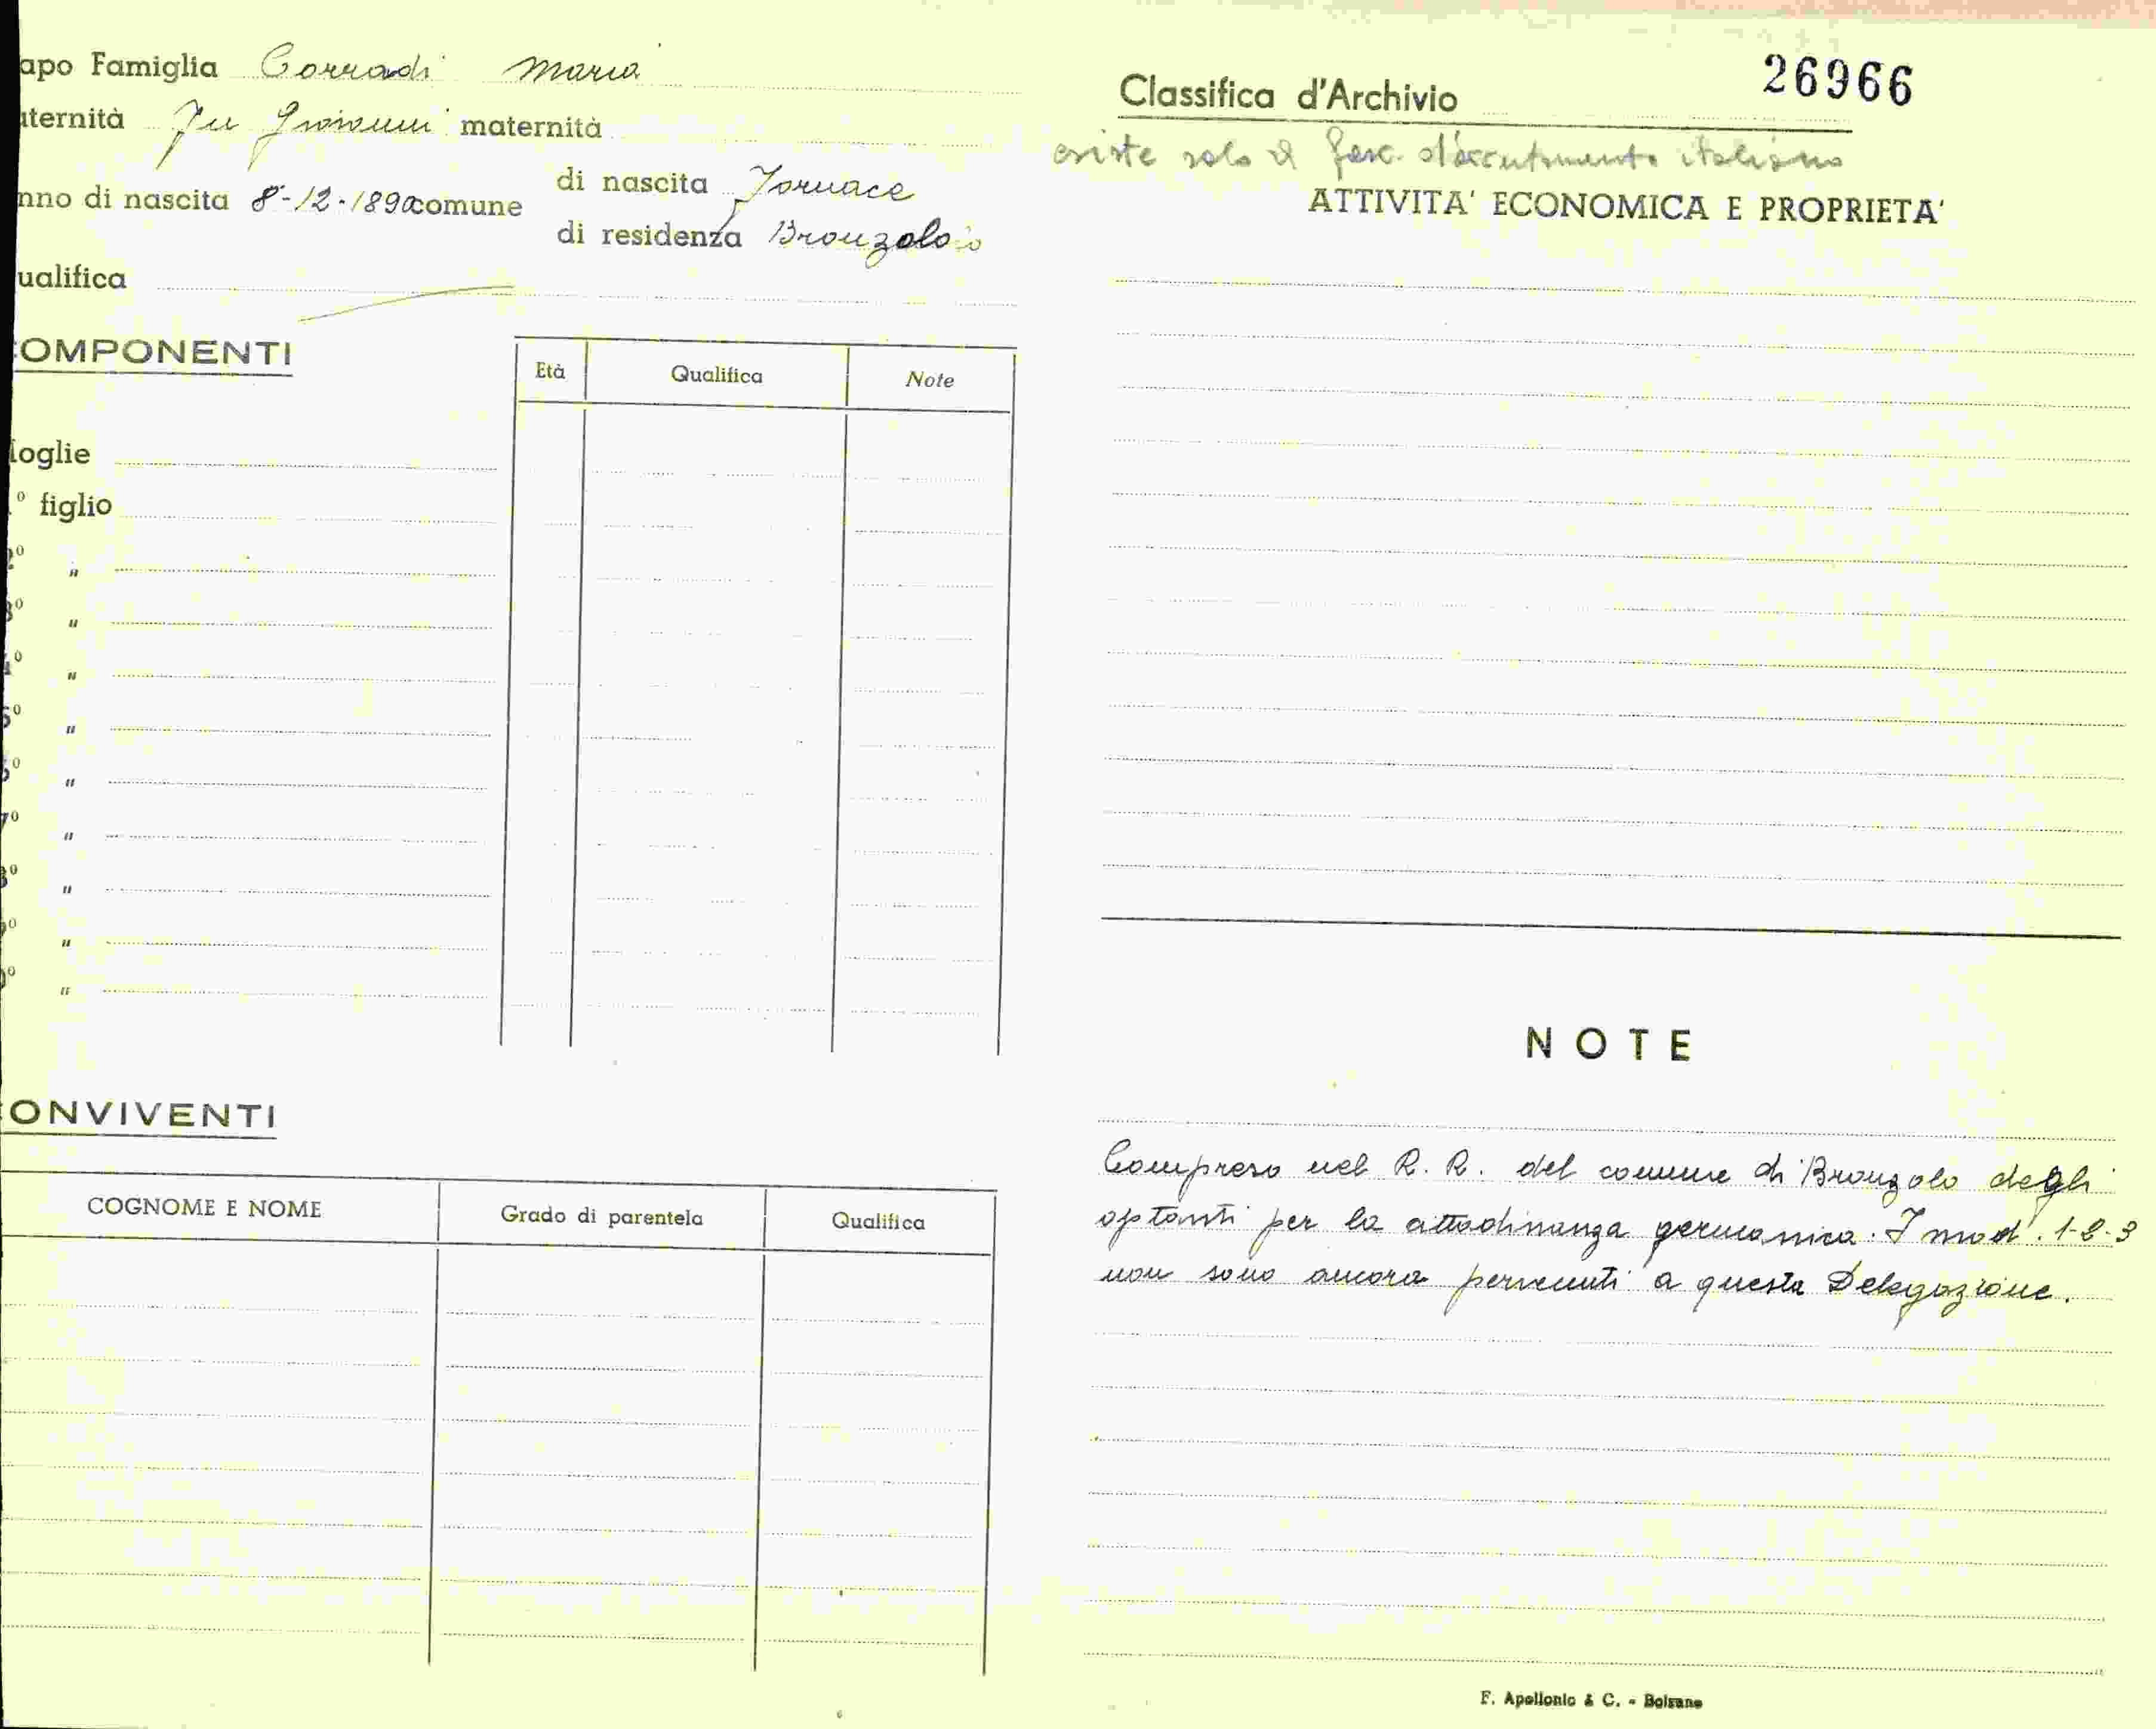 apo Famiglia Corradi Maria
aternità fu Giovanni maternità
nno di nascita 8-12-1890 comune di nascita Fornace
di residenza Bronzolo
ualifica
COMPONENTI
Età Qualifica Note
oglie
° figlio
2° "
3° "
4° "
5° "
6° "
7° "
8° "
9° "
0° "
CONVIVENTI
COGNOME E NOME Grado di parentela Qualifica
26966
Classifica d'Archivio
esiste solo il fasc. d'accertamento italiano
ATTIVITA' ECONOMICA E PROPRIETA'
NOTE
Compreso nel R. R. del comune di Bronzolo degli
optanti per la cittadinanza germanica. I mod. 1-2-3
non sono ancora pervenuti a questa Delegazione.
F. Apollonio & C. - Bolzano